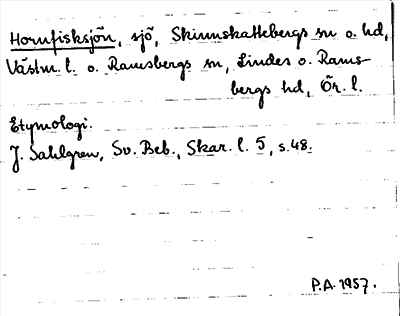 Hornfisksjön, sjö, Skinnskattebergs sn o. hd,
Västm. l. o. Ramsbergs sn, Lindes o. Rams-
bergs hd, Ör. l.
Etymologi.
J. Sahlgren, Sv. Beb., Skar. l. 5, s. 48.
P.A. 1957.